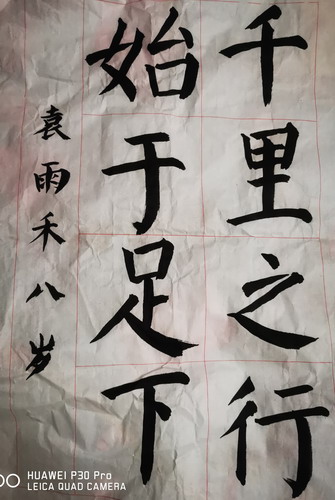 千里之行
始于足下
袁雨禾八岁
HUAWEI P30 Pro
LEICA QUAD CAMERA